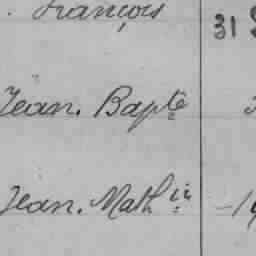 François 31
Jean. Bapte
Jean. Math